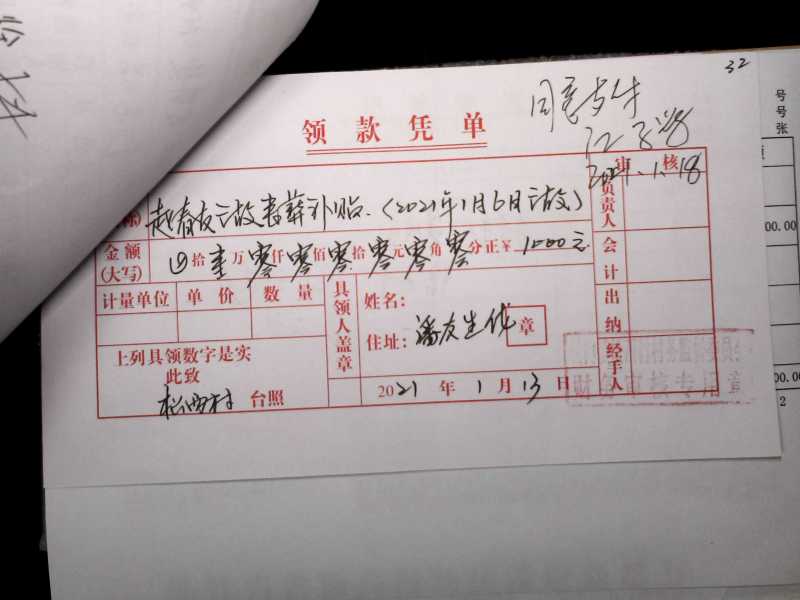 32
同意支付
2021.1.18
领款凭单
审核
赵春友亡故丧葬补贴.(2021年1月6日亡故)
负责人
金额(大写) 拾壹万零仟零佰零拾零元零角零分正¥ 1000元
会计
计量单位 单价 数量
具领人盖章
姓名:
住址: 潘友生代 章
出纳
经手人
上列具领数字是实
此致
松西村 台照
2021年1月13日
号
号
张
00.00
00.00
2